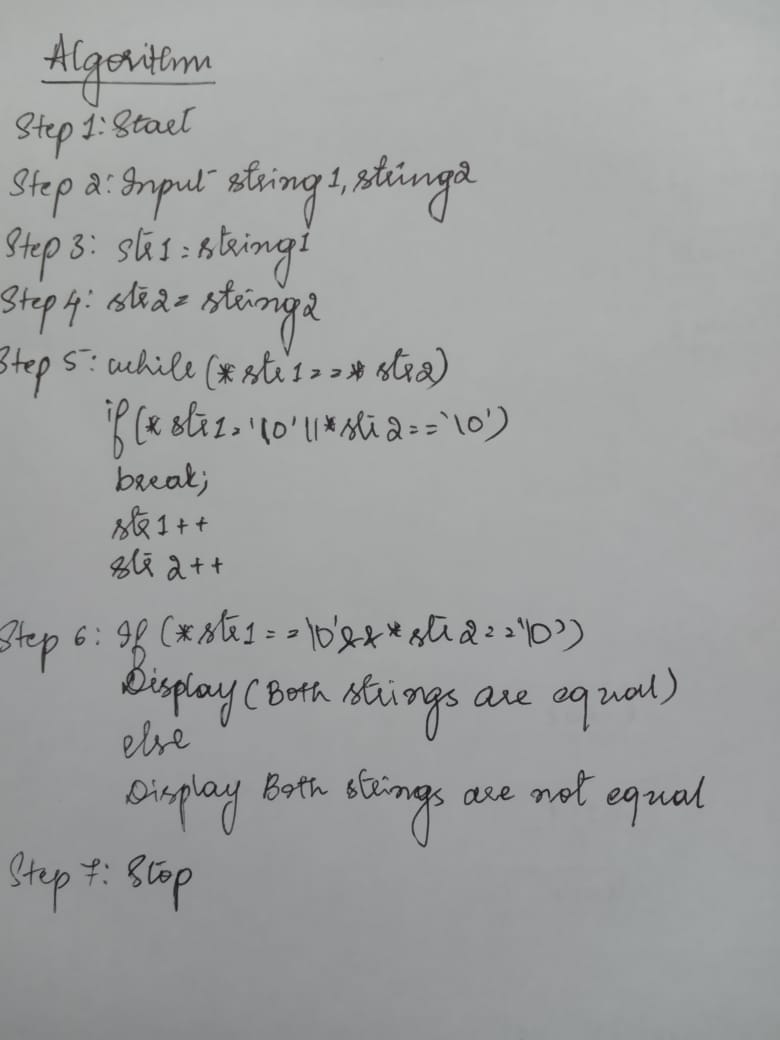 Algorithm
Step 1: Start
Step 2: Input string1, string2
Step 3: str1 = string1
Step 4: str2 = string2
Step 5: while (*str1 == *str2)
if (*str1 = '\0' || *str2 == '\0')
break;
str1++
str2++
Step 6: If (*str1 == '\0' && *str2 == '\0')
Display (Both strings are equal)
else
Display Both strings are not equal
Step 7: Stop